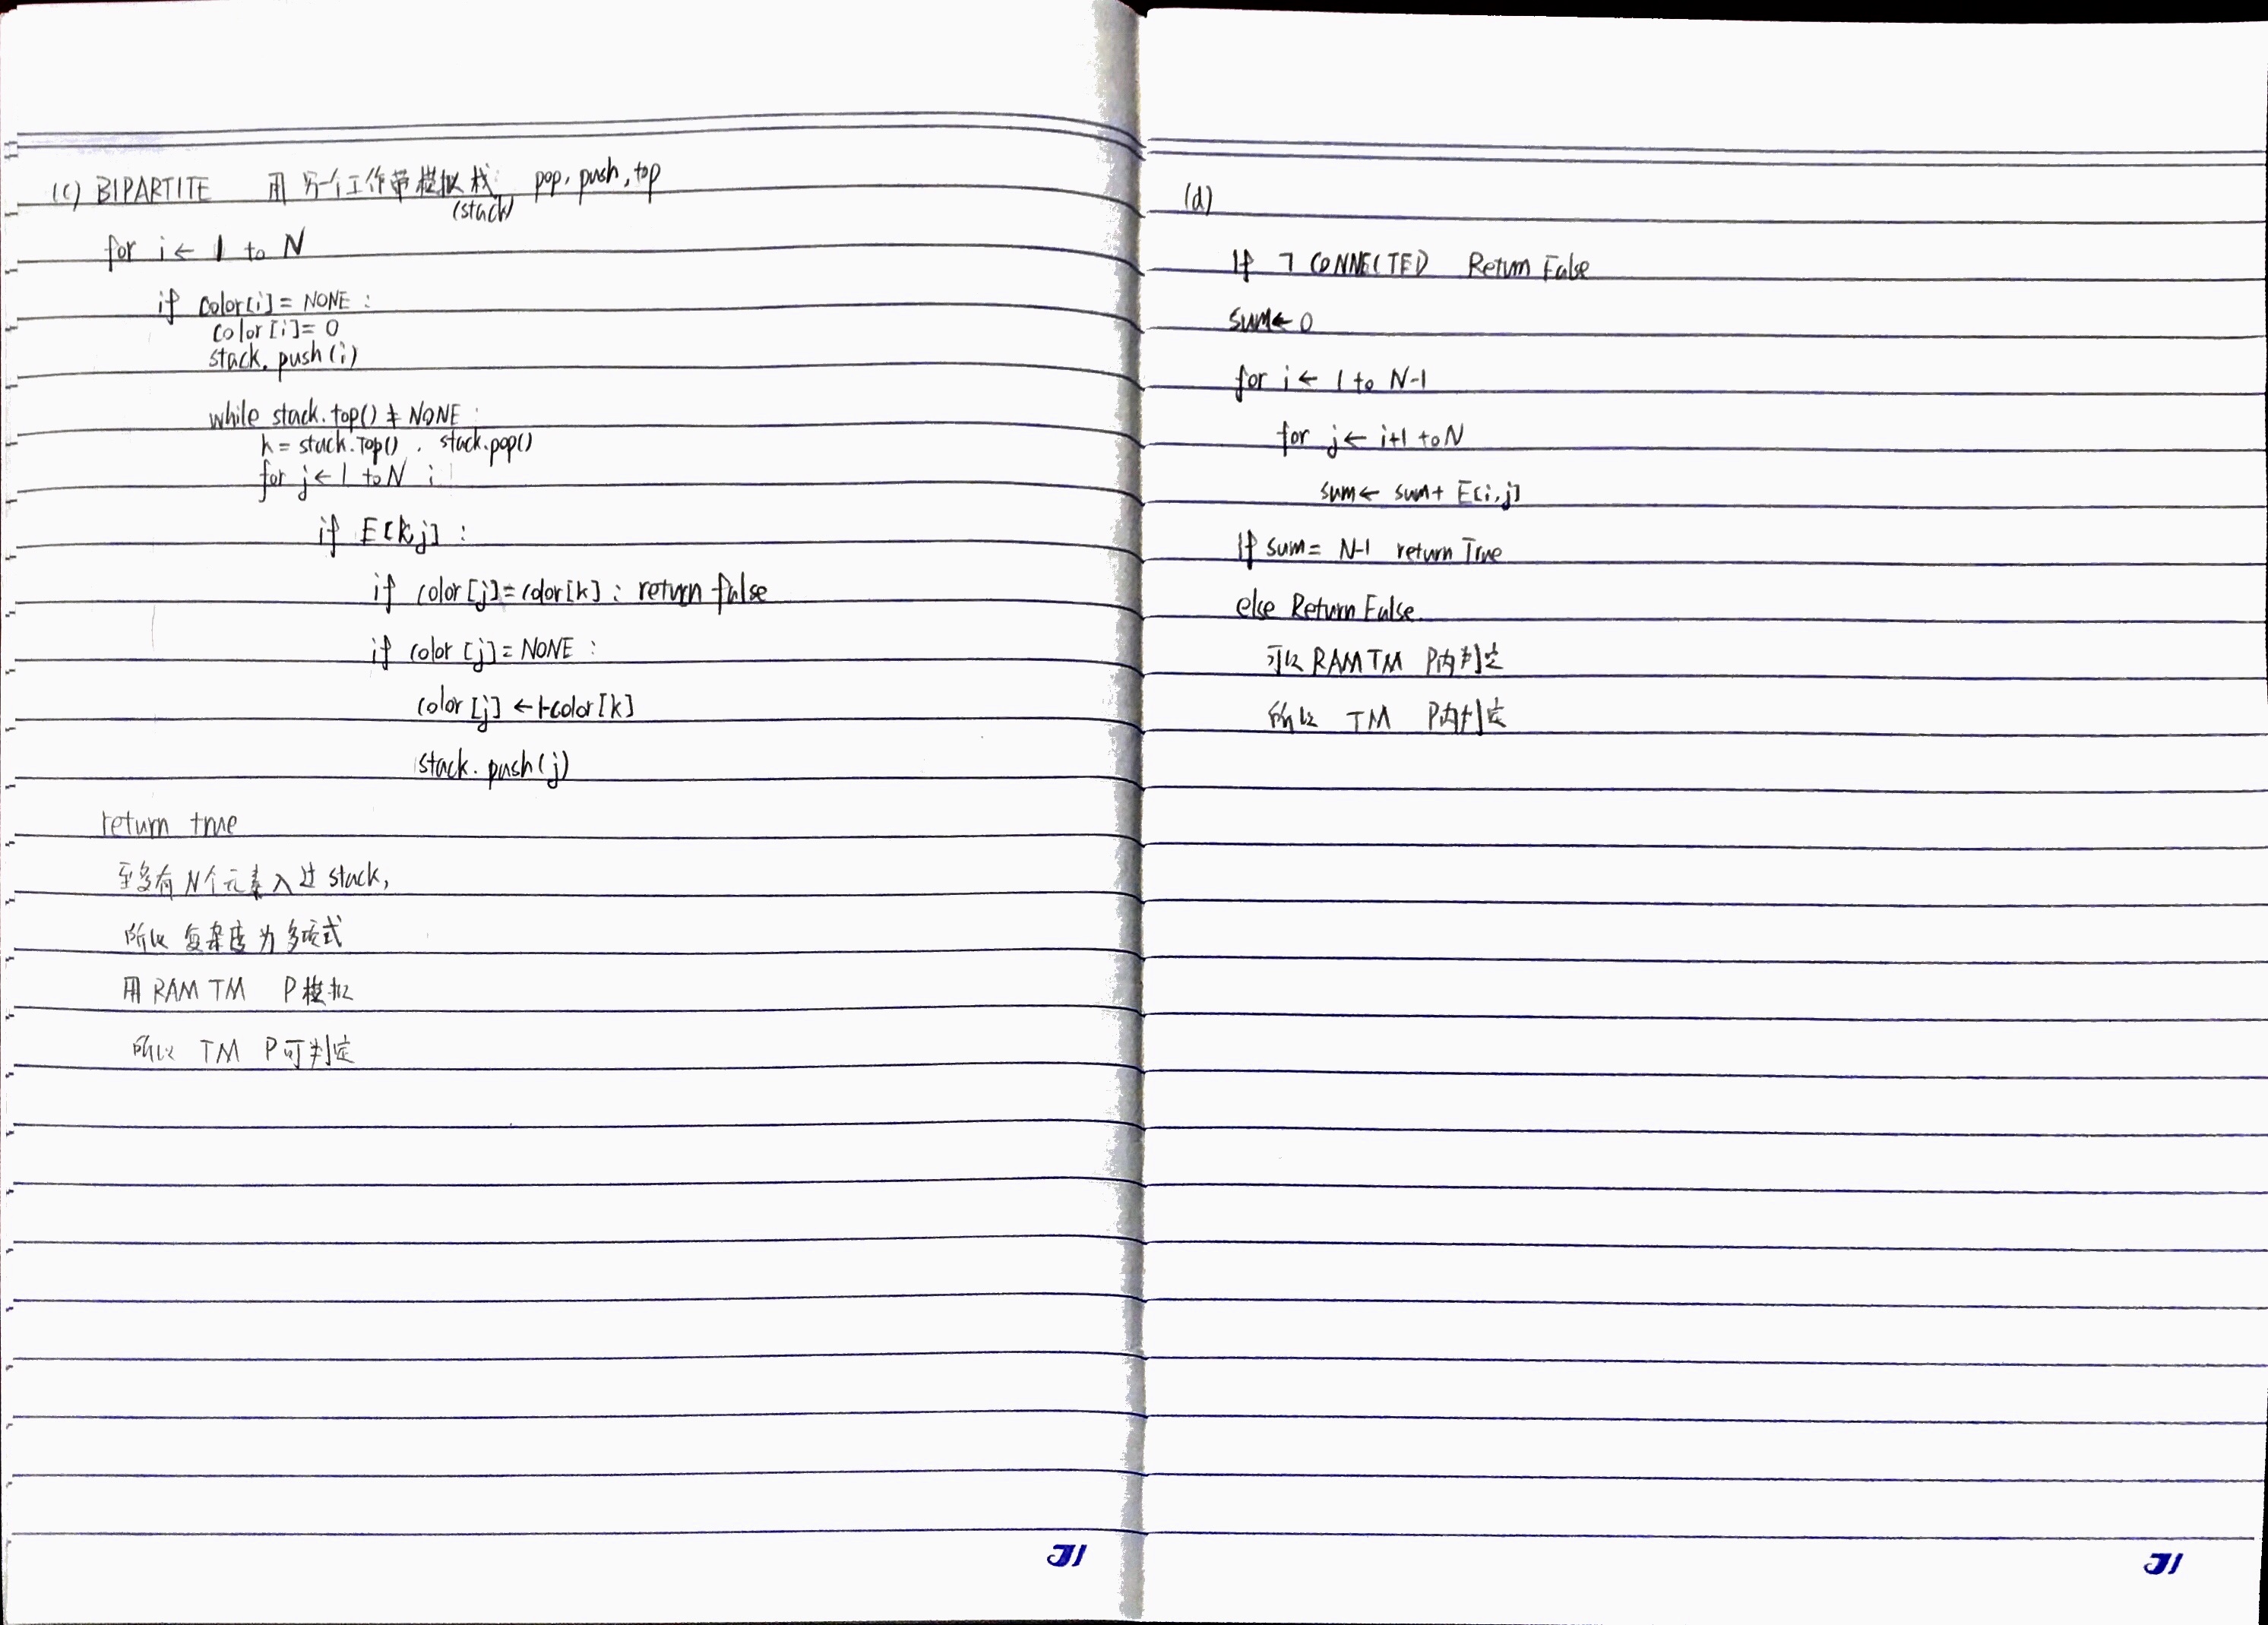 (c) BIPARTITE 用另一个工作带模拟栈 pop, push, top
(stack)
for i ← 1 to N
if color[i] = NONE :
color[i] = 0
stack.push(i)
while stack.top() ≠ NONE :
k = stack.Top() . stack.pop()
for j ← 1 to N :
if E[k,j] :
if color[j] = color[k] : return false
if color[j] = NONE :
color[j] ← 1-color[k]
stack.push(j)
return true
至多有N个元素入过stack,
所以复杂度为多项式
用RAM TM P模拟
所以 TM P可判定
(d)
If ¬ CONNECTED Return False
sum ← 0
for i ← 1 to N-1
for j ← i+1 to N
sum ← sum + E[i,j]
If sum = N-1 return True
else Return False.
可以RAM TM P内判定
所以 TM P内判定